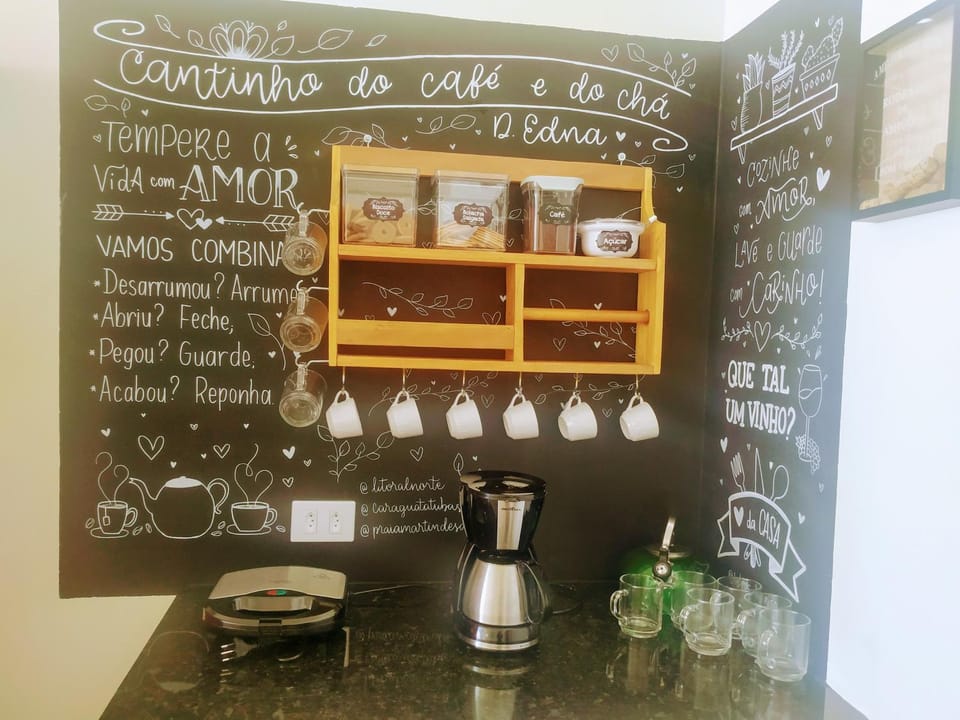 Cantinho do café e do chá
D. Edna
TEMPERE A
VIDA com AMOR
VAMOS COMBINA
*Desarrumou? Arrume
*Abriu? Feche;
*Pegou? Guarde;
*Acabou? Reponha.
Biscoito
Doce
Bolacha
Salgada
Café
Açúcar
@litoralnorte
@caraguatatuba
@praiamartindes
COZINHE
com AMOR,
LAVE e GUARDE
com CARINHO!
QUE TAL
UM VINHO?
da CASA